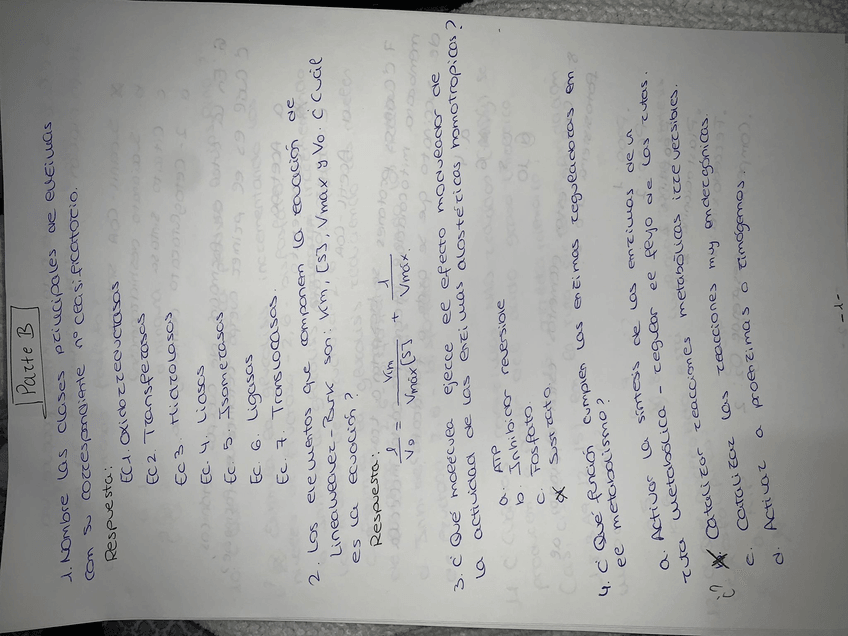 Parte B
1. Nombre las clases principales de enzimas
con su correspondiente nº clasificatorio.
Respuesta:
EC1. Oxidorreductasas
EC2. Transferasas
EC3. Hidrolasas
EC. 4. Liasas
EC. 5. Isomerasas
EC. 6. Ligasas
EC. 7. Translocasas.
2. Los elementos que componen la ecuación de
Lineaweaver-Burk son: Km, [S], Vmax y V0. ¿Cuál
es la ecuación?
Respuesta:
1/V0 = Km/Vmax[S] + 1/Vmáx.
3. ¿Qué molécula ejerce el efecto modulador de
la actividad de las enzimas alostéricas homotrópicas?
a. ATP
b. Inhibidor reversible
c. Fosfato.
d. Sustrato.
4. ¿Qué función cumplen las enzimas reguladoras en
el metabolismo?
a. Activar la síntesis de las enzimas de una
ruta metabólica - regular el flujo de las rutas.
¿? b. Catalizar reacciones metabólicas irreversibles.
c. Catalizar las reacciones muy endergónicas.
d. Activar a proenzimas o zimógenos.
-1-